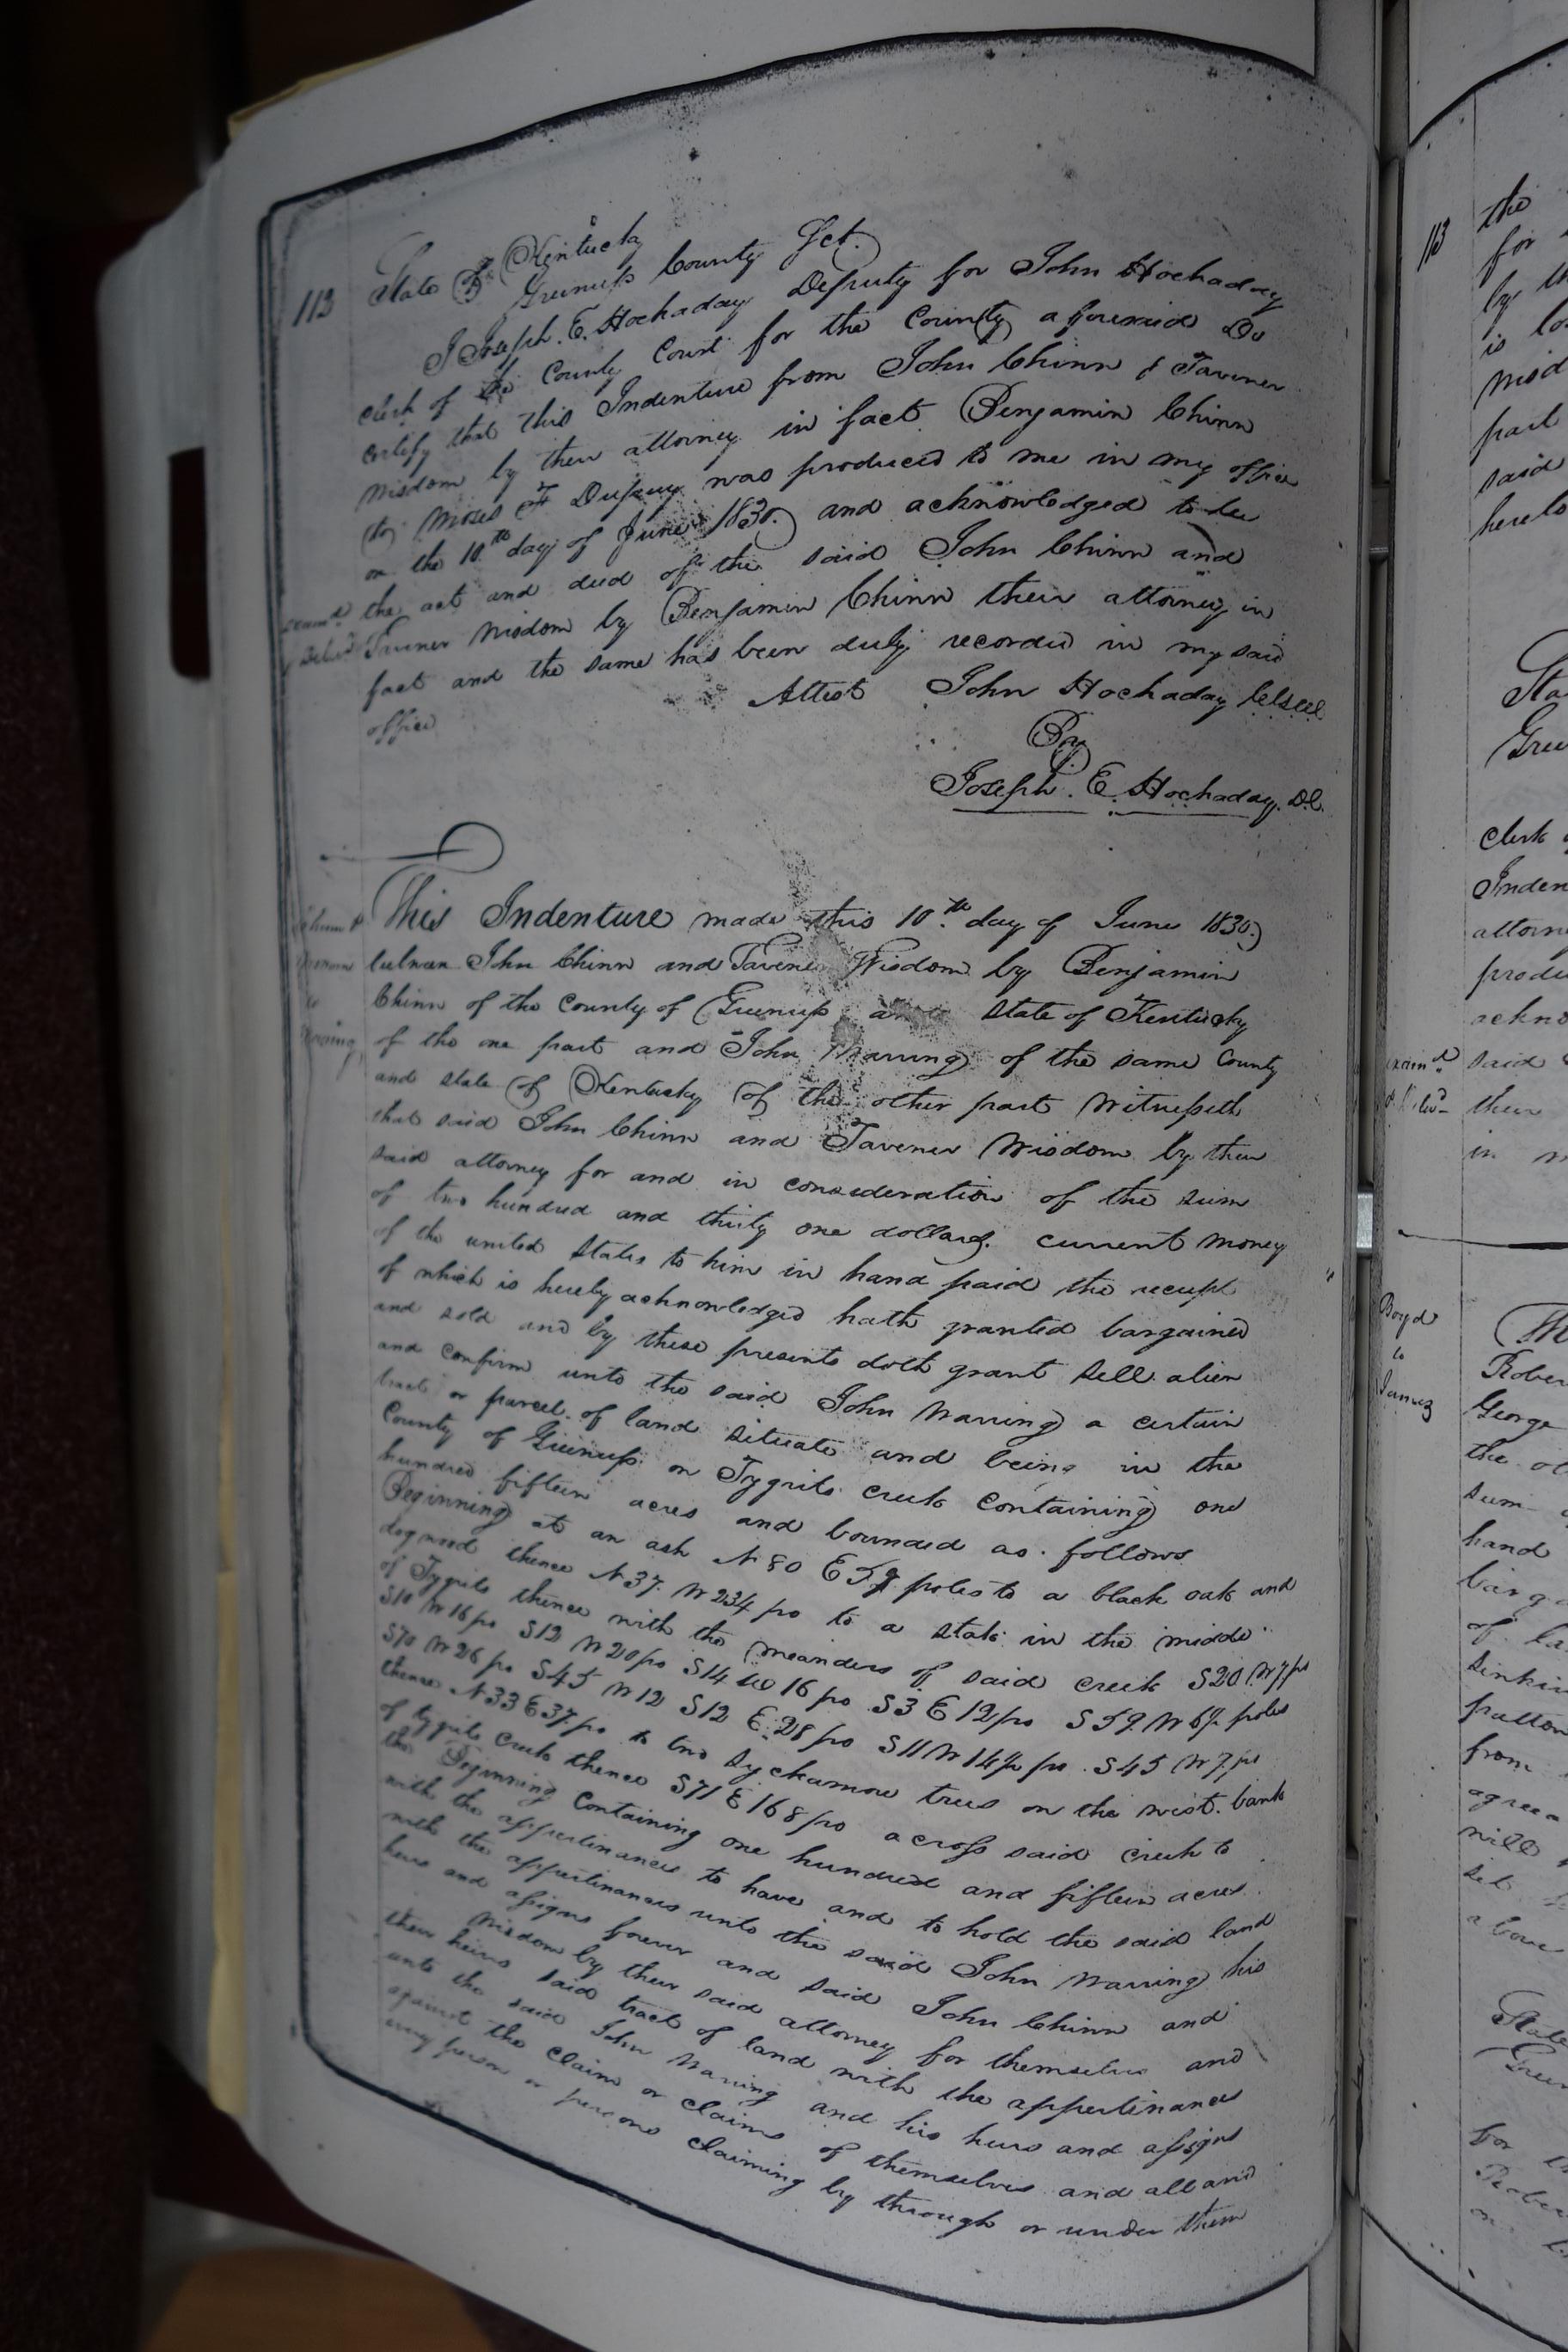 113
State of Kentucky
Greenup County Sct.
I Joseph. E. Hochaday Deputy for John Hochaday
clerk of the County Court for the County aforesaid Do
certify that this Indenture from John Chinn & Tavener
Wisdom by their attorney in fact Benjamin Chinn
to Moses F Dupuy was produced to me in my office
on the 10th day of June 1830. and acknowledged to be
the act and deed of the said John Chinn and
Tavener Wisdom by Benjamin Chinn their attorney in
fact and the same has been duly recorded in my said
office
Attest John Hochaday
By
Joseph. E. Hochaday. D.C.
This Indenture made this 10th day of June 1830.
between John Chinn and Tavener Wisdom by Benjamin
Chinn of the County of Greenup and State of Kentucky
of the one part and John Warring of the same County
and state of Kentucky of the other part Witnesseth
that said John Chinn and Tavener Wisdom by their
said attorney for and in consideration of the sum
of two hundred and thirty one dollars. current money
of the united States to him in hand paid the receipt
of which is hereby acknowledged hath granted bargained
and sold and by these presents doth grant sell alien
and confirm unto the said John Warring a certain
tract or parcel of land situate and being in the
County of Greenup on Tygrits creek containing one
hundred fifteen acres and bounded as follows
Beginning at an ash N 80 E poles to a black oak and
dogwood thence N 37. W 234 po to a stake in the middle
of Tygrits thence with the meanders of said creek S 20 W 7 po
S10 W 16 po S12 W 20 po S14 W 16 po S3 E 12 po S 59. W poles
S70 W 26 po S45 W 12 S12 E 28 po S11 W po S45 W 7 po
thence N 33 E 37 po to two Sychamore trees on the west. bank
of tygrits creek thence S71 E 168 po across said creek to
the Beginning containing one hundred and fifteen acres
with the appertinances to have and to hold the said land
with the appertinances unto the said John Warring his
heirs and assigns forever and said John Chinn and
Wisdom by their said attorney for themselves and
their heirs said tract of land with the appertinances
unto the said John Warring and his heirs and assigns
against the claim or claims of themselves and all and
every person or persons claiming by through or under them
113
the
for
by th
is lo
Wisd
part
said
hereto
Sta
Gree
Clerk
Inden
attorne
produ
ackno
said
their
in
Boyd
to
Rober
George
the ot
sum
hand
barga
of la
sinkin
from
agreea
will
above
State
Gree
for
on